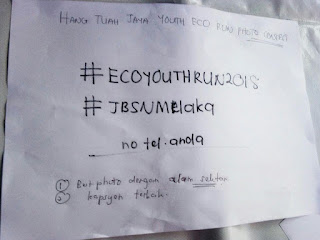 HANG TUAH JAYA YOUTH ECO RUN PHOTO CONTEST
#ECOYOUTHRUN2018
#JBSNMElaka
no tel. anda
① But photo dengan alam sekitar
② kapsyen terbaik.